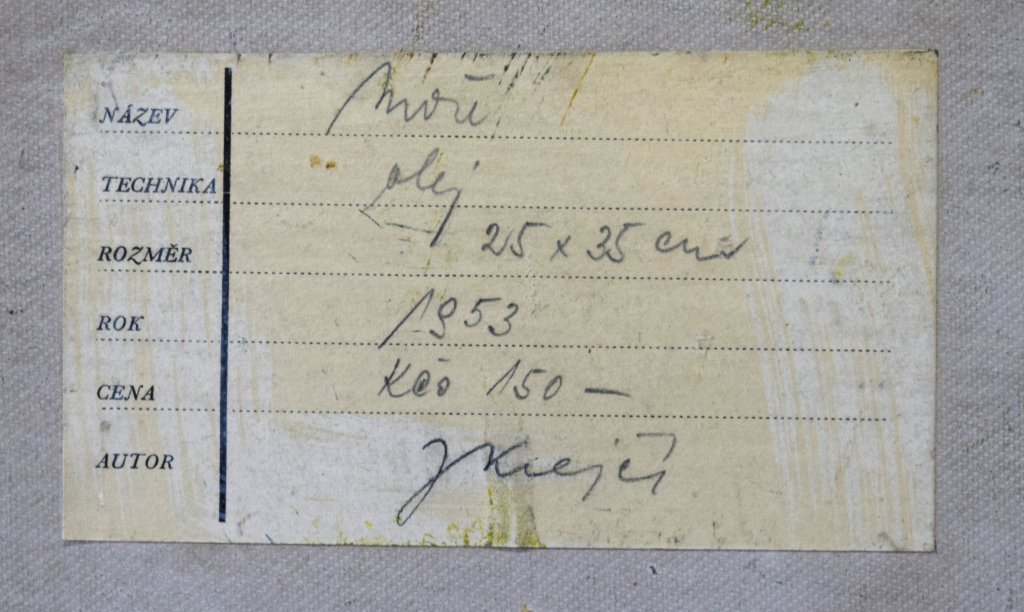 NÁZEV Moře
TECHNIKA olej
ROZMĚR 25 x 35 cm
ROK 1953
CENA Kčs 150 —
AUTOR J Krejčí